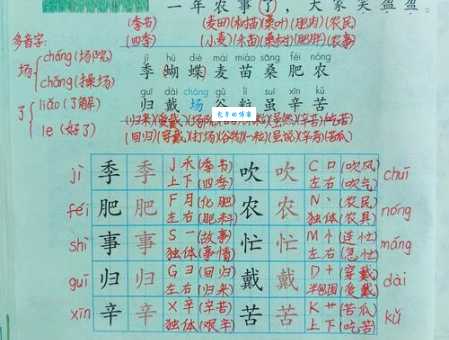 一年农事了，大家笑盈盈
(季节) (麦田)(树苗)(桑叶)(肥肉)(农民)
多音字: (四季) (小麦)(禾苗)(桑树)(肥胖)(农事)
jì hú dié mài miáo sāng féi nóng
场 cháng (场院) 季 蝴 蝶 麦 苗 桑 肥 农
chǎng (操场)
guī dài cháng gǔ lì suī xīn kǔ
了 liǎo (了解) 归 戴 场 谷 粒 虽 辛 苦
le (好了) (归来)(穿戴)
(回归)(穿戴)(打场)(谷物)(一粒)(虽说)(辛苦)(苦瓜)
jì 季 季 J 禾 (季节) 吹 吹 C 口 (吹风) chuī
上下 (四季) 左右 (吹气)
féi 肥 肥 F 月 (化肥) 农 农 N 丶 (农民) nóng
左右 (肥料) 独体 (农具)
shì 事 事 S 一 (故事) 忙 忙 M 忄 (连忙) máng
独体 (事情) 左右 (急忙)
guī 归 归 G 彐 (回归) 戴 戴 D 十 (穿戴) dài
左右 (归来) 半包围 (爱戴)
xīn 辛 辛 X 辛 (辛苦) 苦 苦 K 艹 (苦瓜) kǔ
独体 (艰辛) 上下 (吃苦)